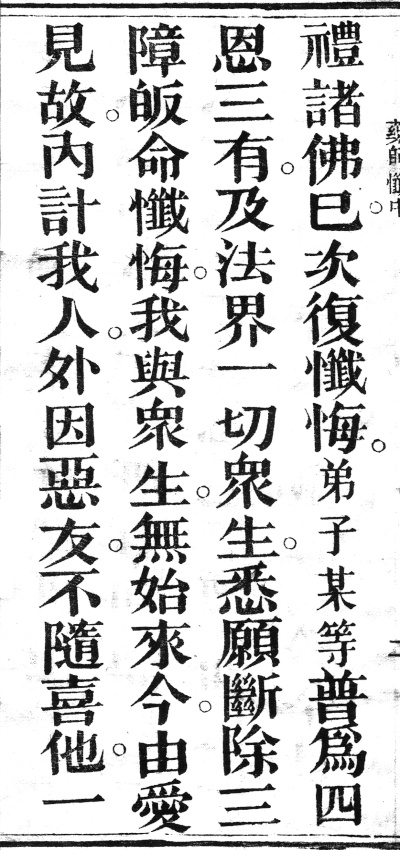 禮諸佛已。次復懺悔。弟子某等普爲四
恩三有。及法界一切衆生。悉願斷除三
障。皈命懺悔。我與衆生。無始來今。由愛
見故。內計我人。外因惡友。不隨喜他。一
藥師懺中